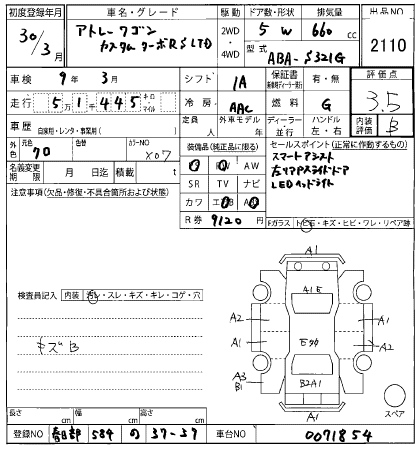 初度登録年月 車名・グレード 駆動 ドア数・形状 排気量 出品NO
30/3 アトレーワゴン カスタムターボRS LTD 2WD・4WD 5 W 660 cc 2110
型式 ABA-S321G
車検 9年 3月 シフト IA 保証書 有・無 評価点
走行 5万1千445 キロ・マイル 冷房 AAC 燃料 G 3.5
車歴 自家用・レンタ・事業用( ) 定員 人 外車モデル 年 ディーラー・並行 ハンドル 左・右 内装評価 B
外色 元色 70 色替 カラーNO X07
装備品(純正品に限る) セールスポイント(正常に作動するもの)
名義変更期限 月 日迄 積載 t
AW スマートアシスト
SR TV ナビ 左マアPスライドドア
カワ LEDヘッドライト
注意事項(欠品・修復・不具合箇所および状態)
R券 9120 円
Fガラス トビ石・キズ・ヒビ・ワレ・リペア跡
A1
検査員記入 内装 汚レ・スレ・キズ・キレ・コゲ・穴
A2 A1
キズB
A1 A2
A3 B1 B2A1
A1
スペア
長さ cm 幅 cm 高さ cm
登録NO 春日部 584 の 37-57 車台NO 0071854